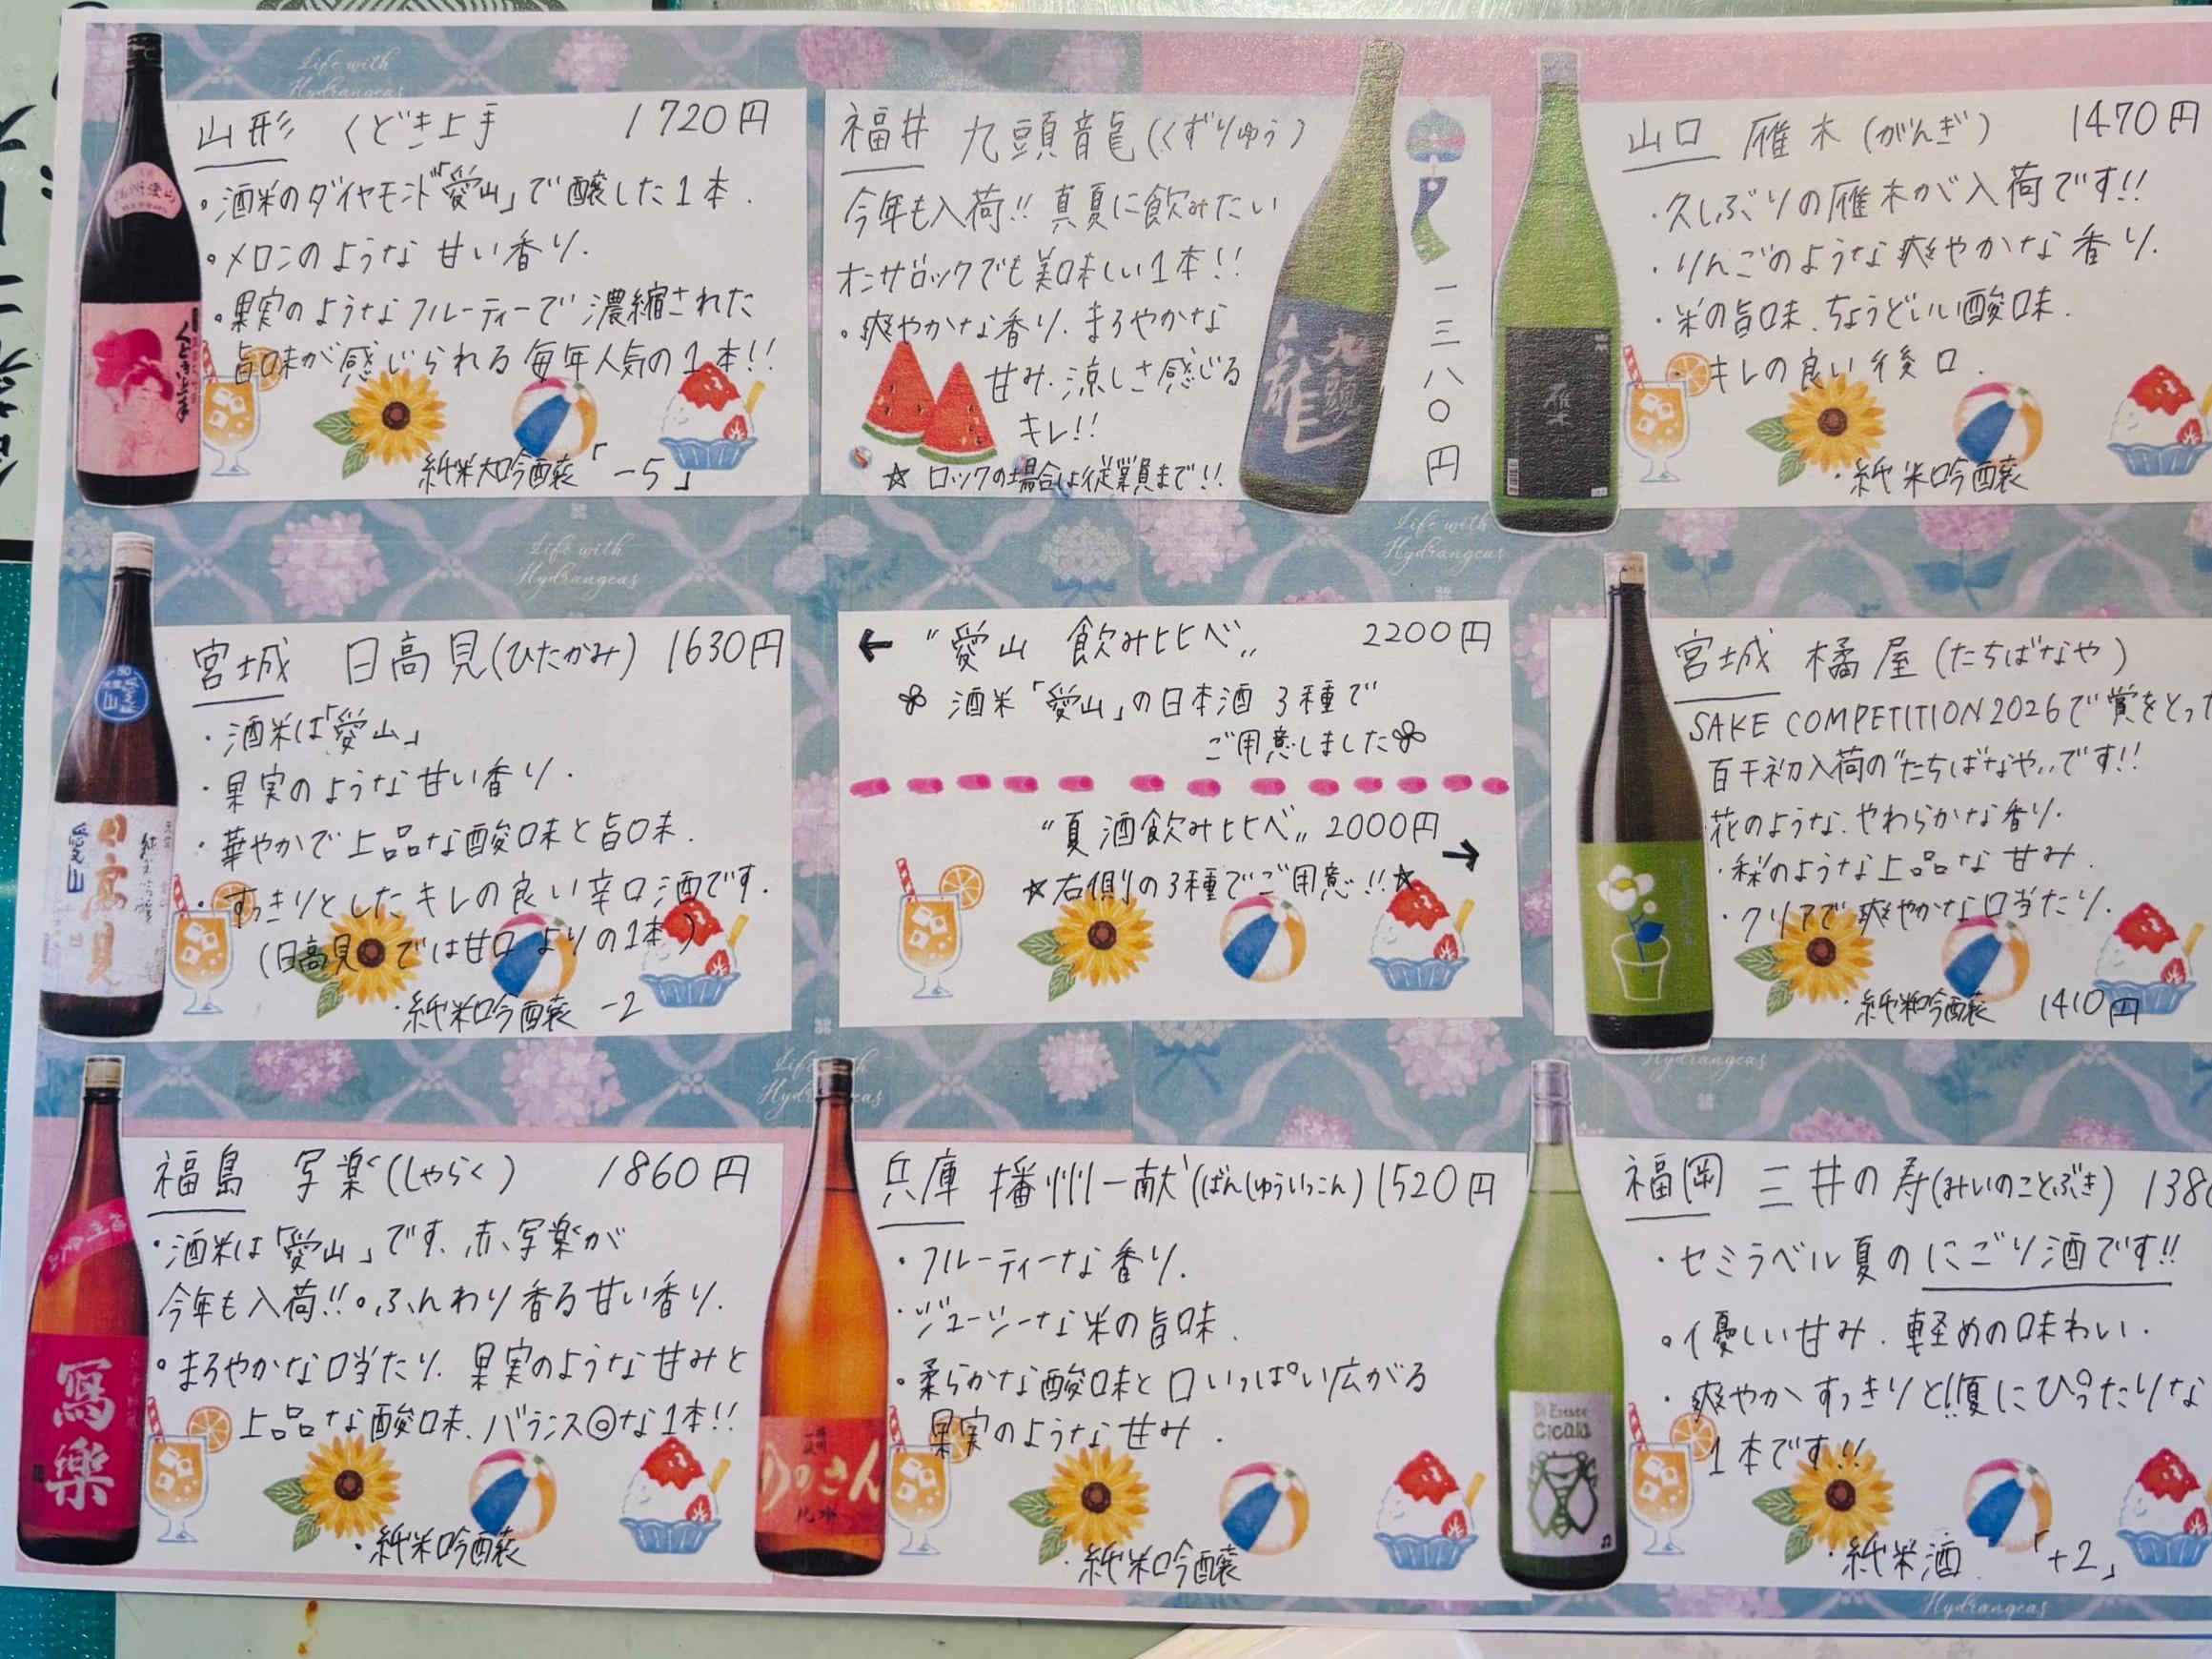 Life with
Hydrangeas
山形 くどき上手 1720円
・酒米のダイヤモンド「愛山」で醸した1本.
・メロンのような甘い香り.
・果実のようなフルーティーで濃縮された
旨味が感じられる毎年人気の1本!!
純米大吟醸「-5」
くどき上手
福井 九頭龍(くずりゅう)
今年も入荷!! 真夏に飲みたい
オンザロックでも美味しい1本!!
・爽やかな香り.まろやかな
甘み.涼しさ感じる
キレ!!
☆ ロックの場合は従業員まで!!
一三八〇円
九頭龍
山口 雁木(がんぎ) 1470円
・久しぶりの雁木が入荷です!!
・りんごのような爽やかな香り.
・米の旨味、ちょうどいい酸味.
・キレの良い後口.
・純米吟醸
雁木
Life with
Hydrangeas
Life with
Hydrangeas
宮城 日高見(ひたかみ) 1630円
・酒米は「愛山」
・果実のような甘い香り.
・華やかで上品な酸味と旨味.
・すっきりとしたキレの良い辛口酒です.
(日高見では甘口よりの1本)
・純米吟醸 -2
日高見
愛山
純米吟醸
← "愛山 飲み比べ„ 2200円
酒米「愛山」の日本酒 3種で
ご用意しました
"夏酒飲み比べ„ 2000円
→
☆右側の3種でご用意!!☆
宮城 橘屋(たちばなや)
SAKE COMPETITION2026で賞をとった
百千初入荷の"たちばなや„です!!
花のような、やわらかな香り.
・梨のような上品な甘み.
・クリアで爽やかな口当たり.
・純米吟醸 1410円
Life with
Hydrangeas
Hydrangeas
福島 写楽(しゃらく) 1860円
・酒米は「愛山」です.赤写楽が
今年も入荷!!。ふんわり香る甘い香り.
・まろやかな口当たり.果実のような甘みと
上品な酸味、バランス◎な1本!!
・純米吟醸
寫樂
兵庫 播州一献(ばんしゅういっこん) 1520円
・フルーティーな香り.
・ジューシーな米の旨味.
・柔らかな酸味と口いっぱい広がる
果実のような甘み.
・純米吟醸
福岡 三井の寿(みいのことぶき) 138
・セミラベル夏のにごり酒です!!
・優しい甘み.軽めの味わい.
・爽やかすっきりと!!夏にぴったりな
1本です!!
・純米酒 「+2」
Di Estate
Cicala
Hydrangeas